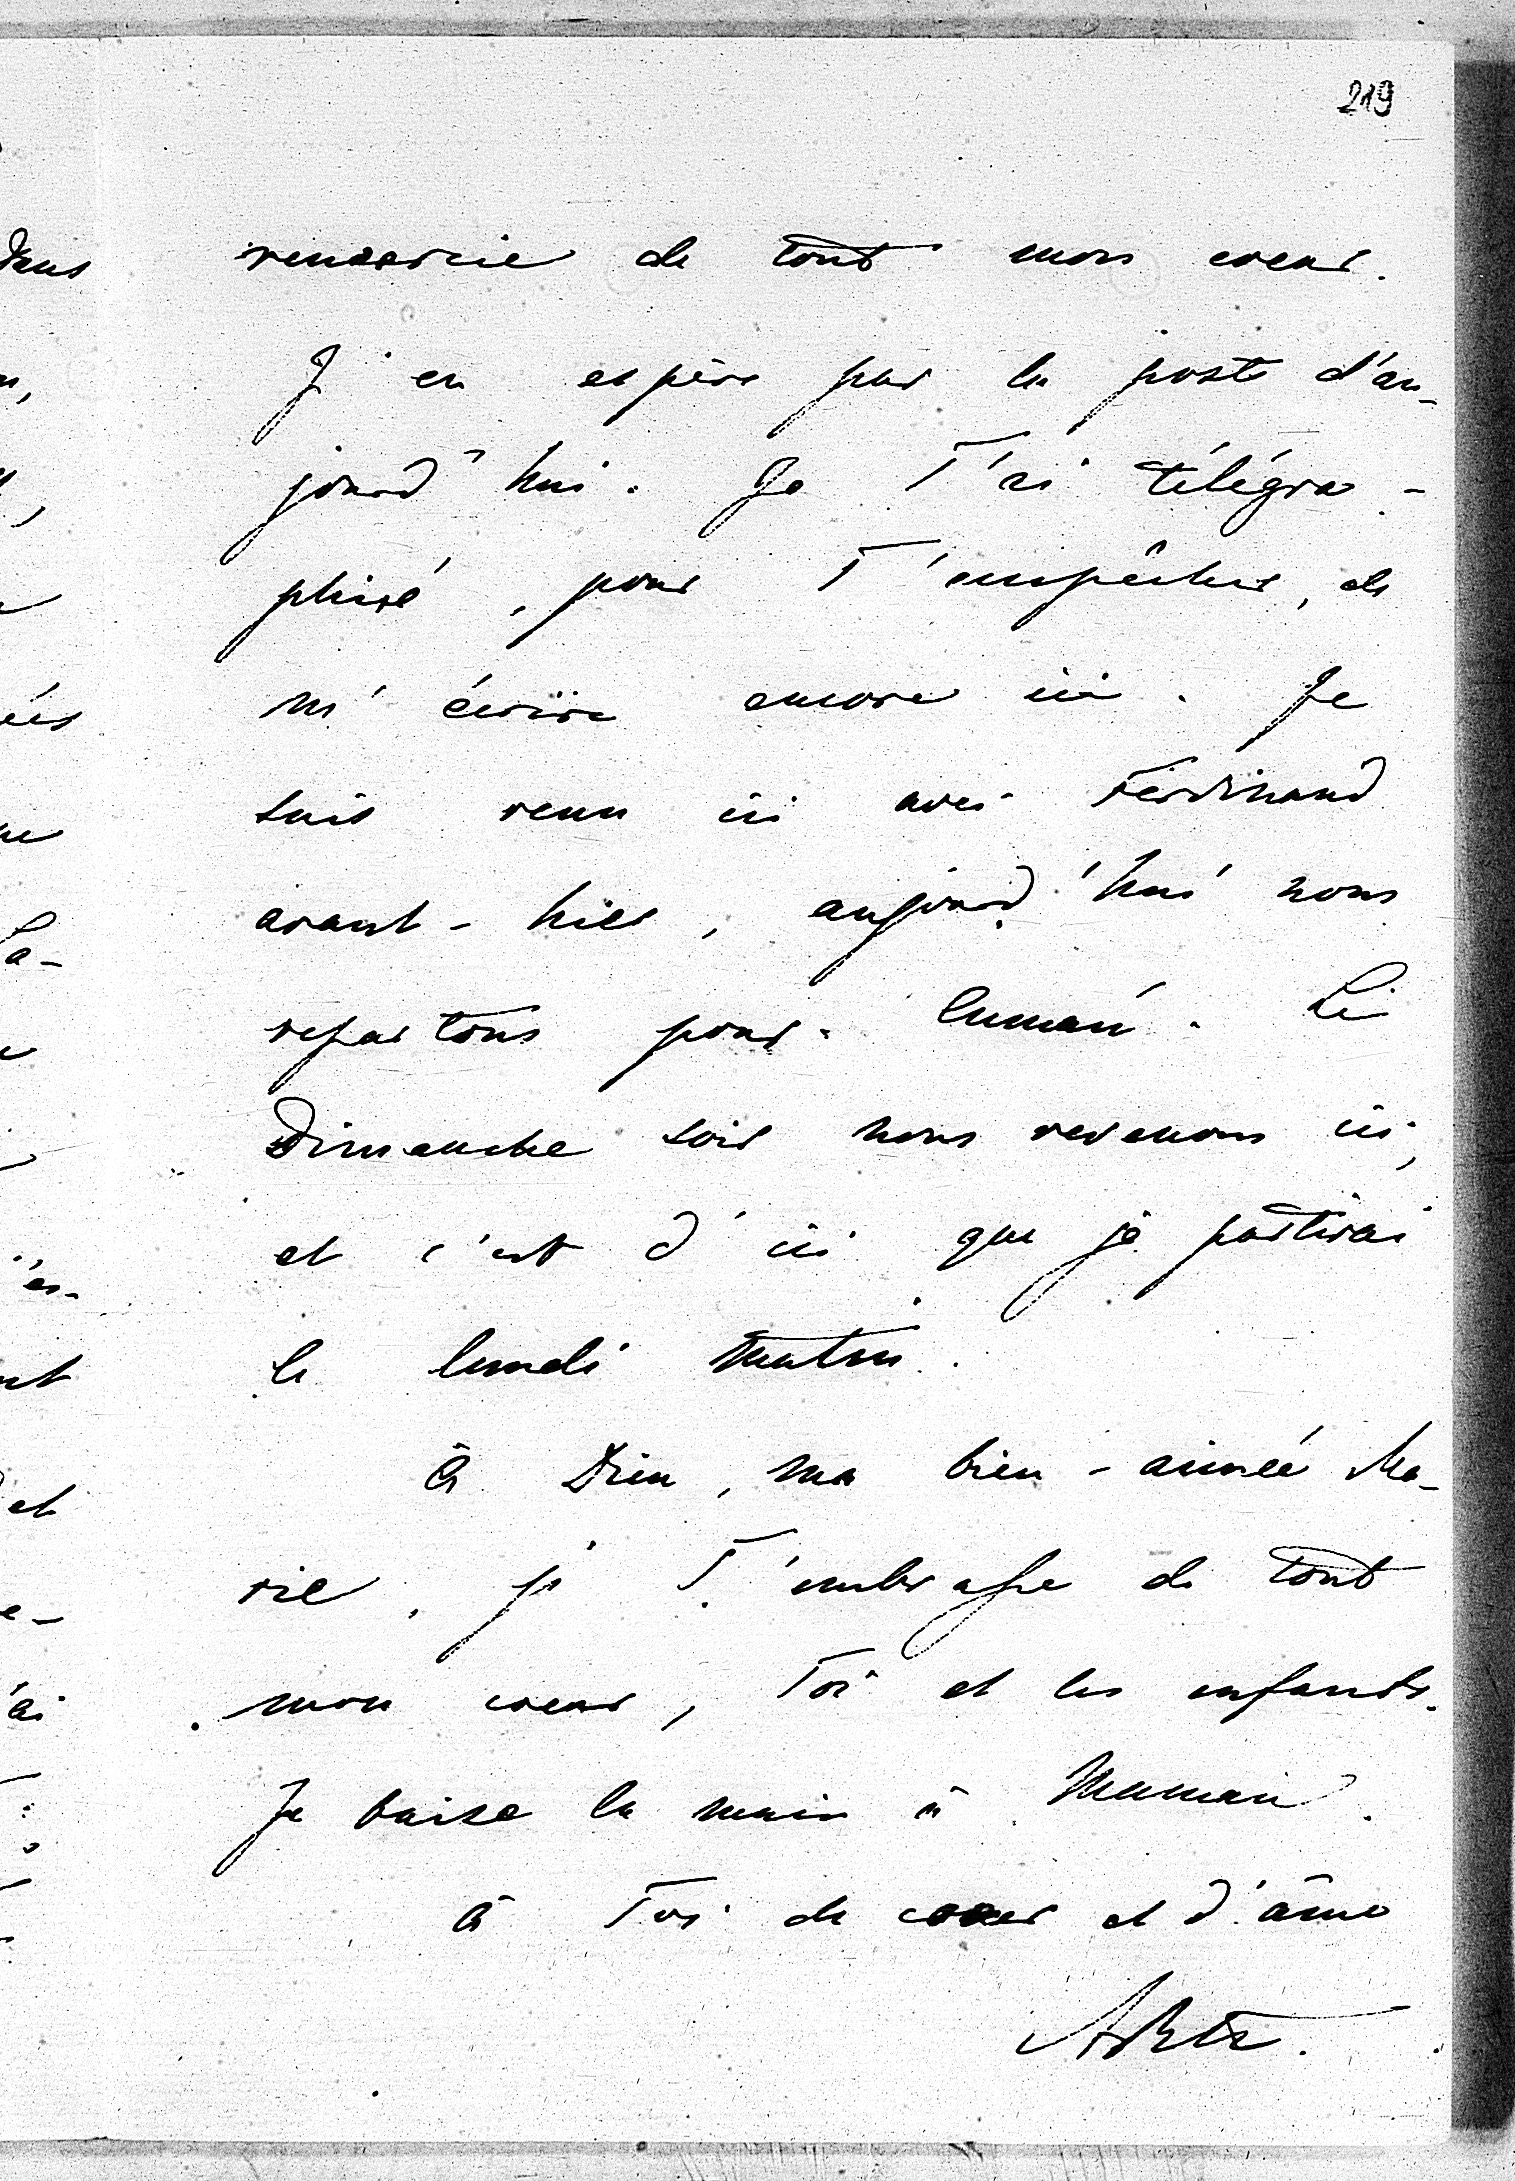 219
remercie de tout mon coeur.
J'en espère par la poste d'au-
jourd'hui. Je T'ai télégra-
phié, pour T'empêcher, de
m'écrire encore ici. Je
suis venu ici avec Ferdinand
avant-hier, aujourd'hui nous
repartons pour. Le
Dimanche soir nous revenons ici,
et c'est d'ici que je partirai
le lundi matin.
à Dieu, ma bien-aimée Ma-
rie, je T'embrasse de tout
mon coeur, Toi et les enfants.
Je baise la main à Maman.
à Toi de coeur et d'âme